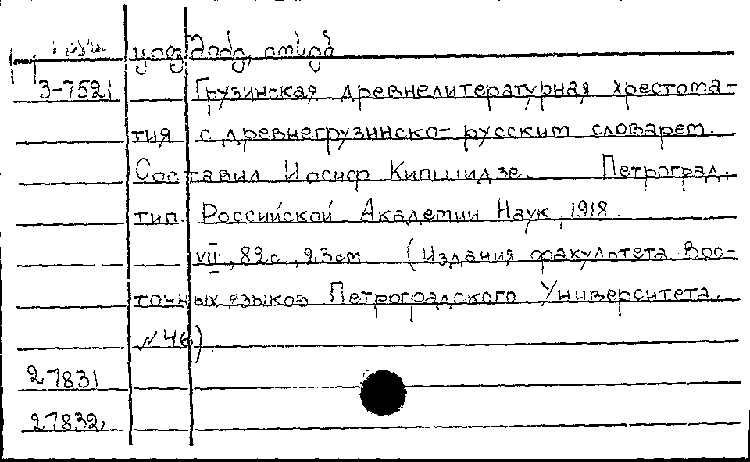 ყიფშიძე, იოსებ
3-7521 Грузинская древнелитературная хрестома-
тия с древнегрузинско-русским словарем.
Составил Иосиф Кипшидзе. Петроград,
тип. Российской Академии Наук, 1918.
VII, 82с., 23см (Издания факультета Вос-
точных языков Петроградского Университета.
№46)
27831
27832,